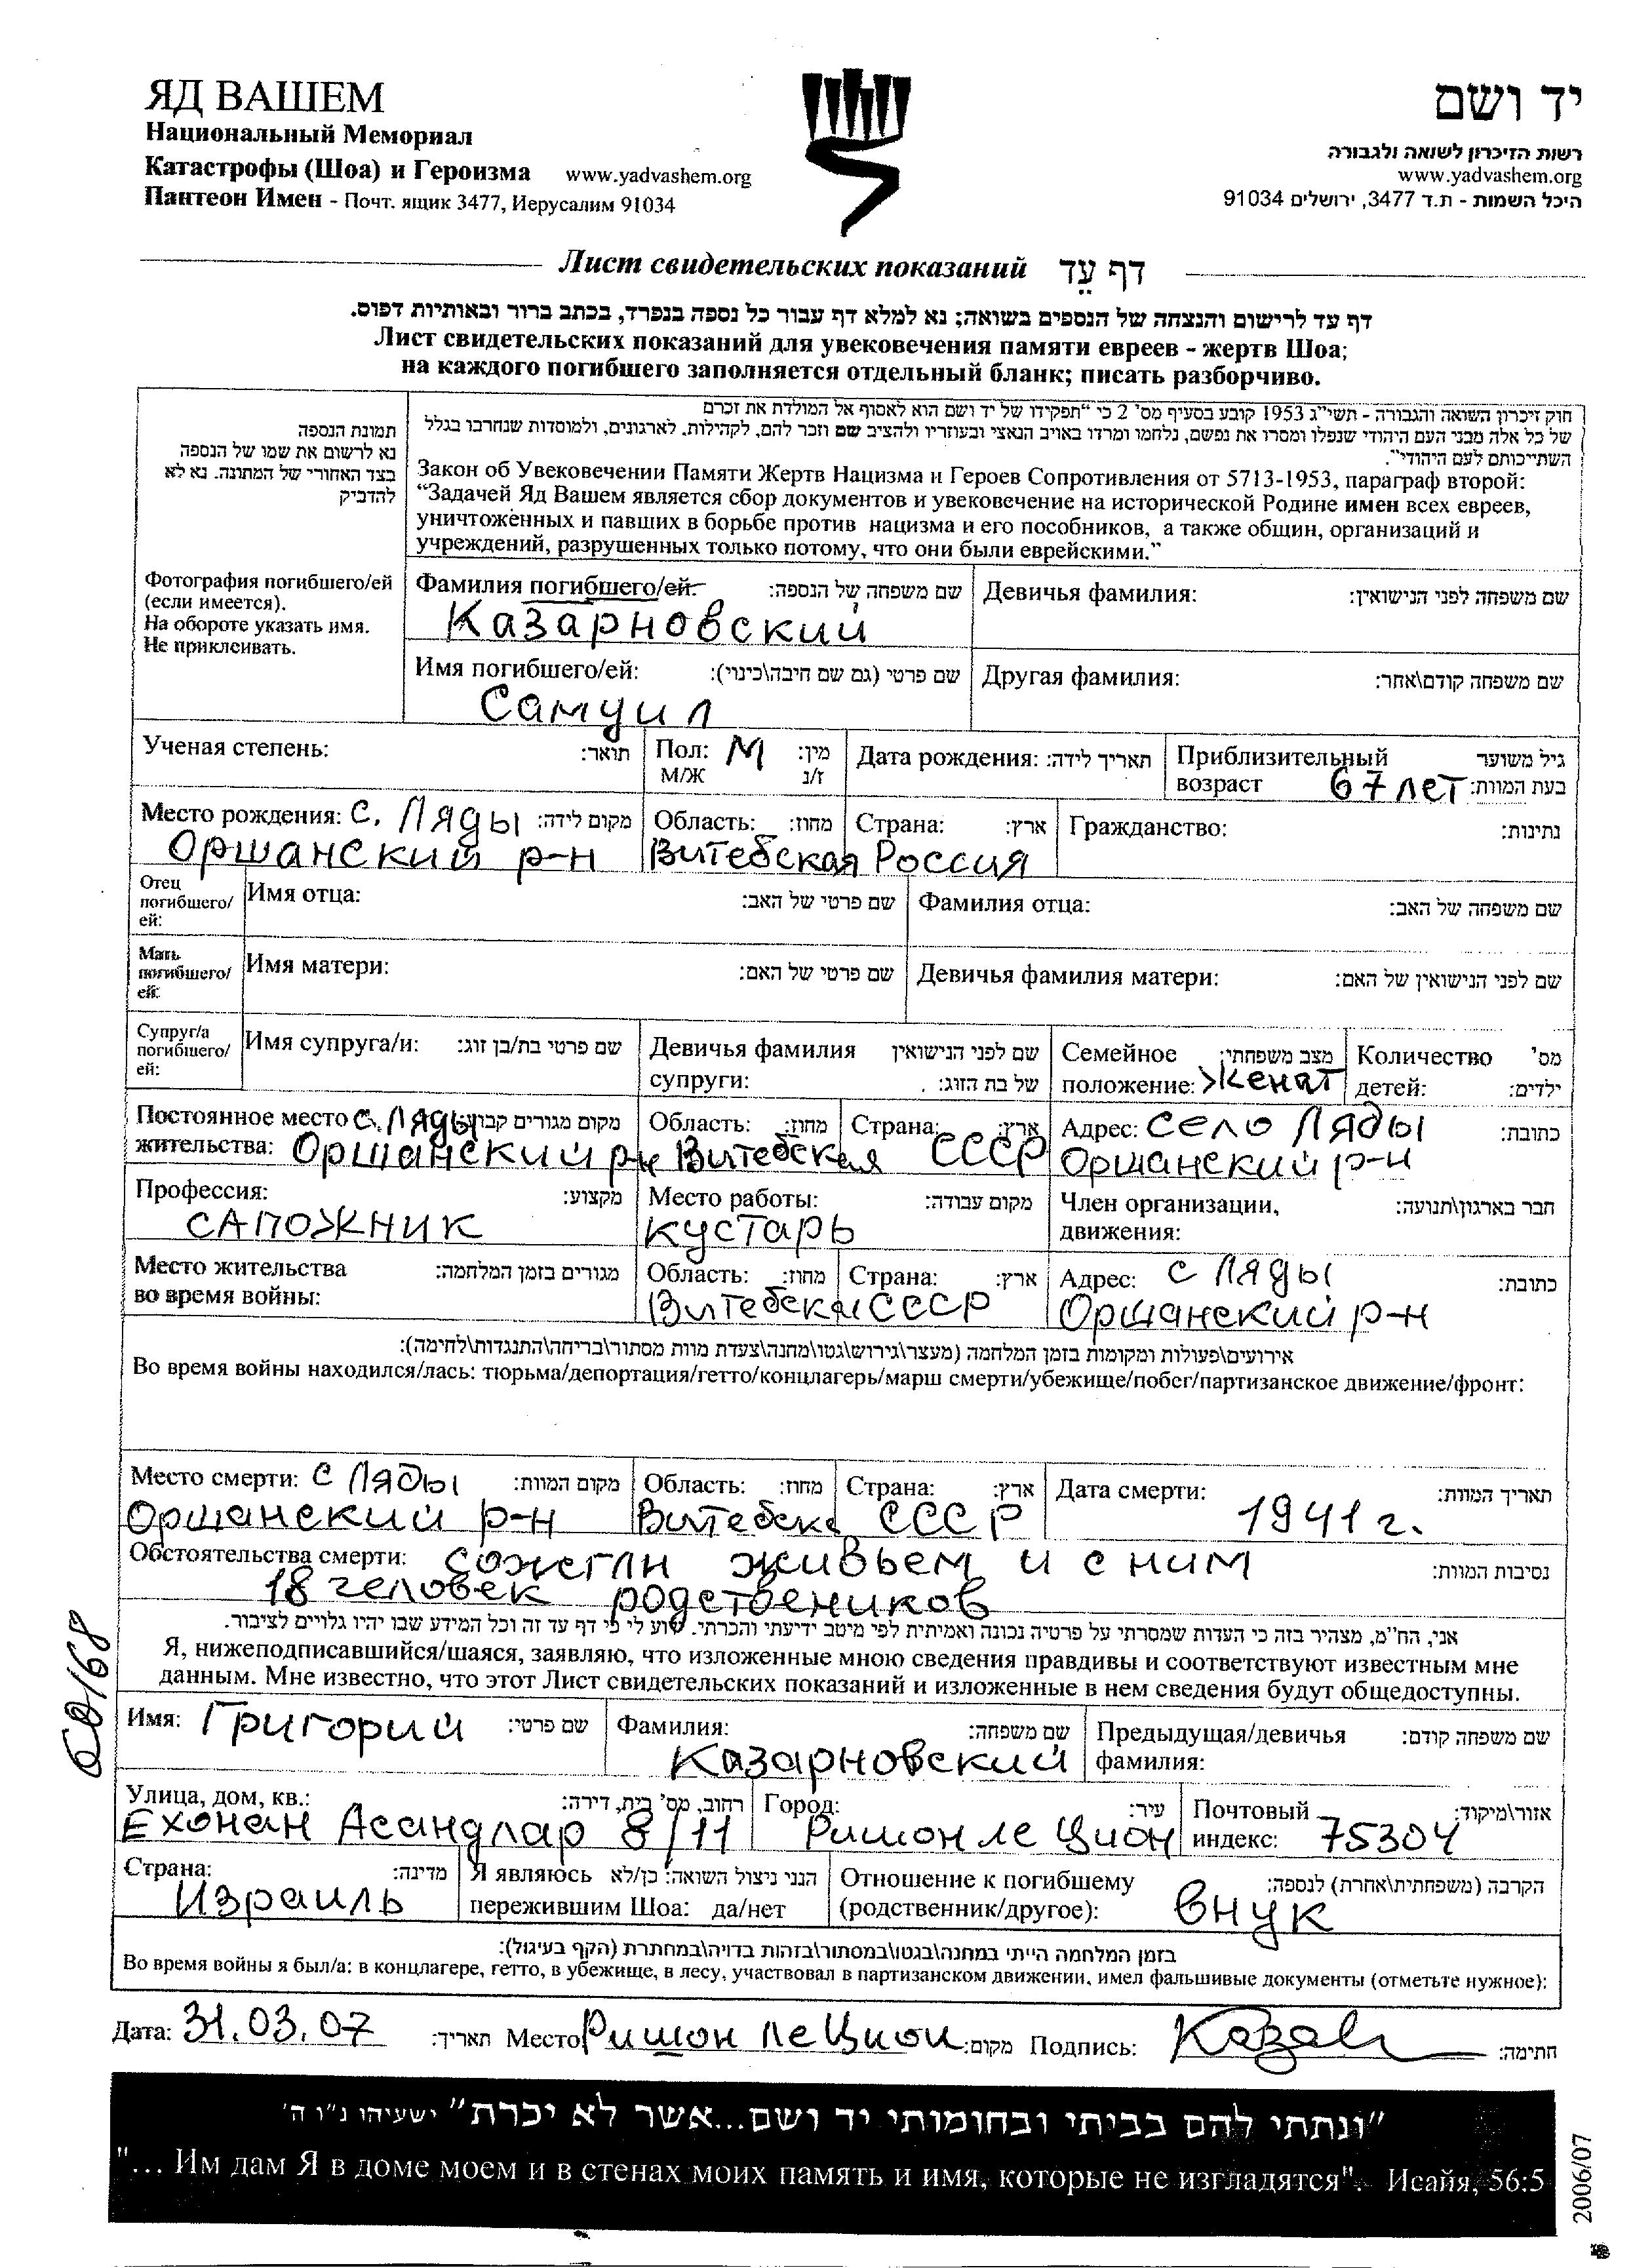 ЯД ВАШЕМ
Национальный Мемориал
Катастрофы (Шоа) и Героизма www.yadvashem.org
Пантеон Имен - Почт. ящик 3477, Иерусалим 91034
יד ושם
רשות הזיכרון לשואה ולגבורה
www.yadvashem.org
היכל השמות - ת.ד 3477, ירושלים 91034
Лист свидетельских показаний דף עֵד
דף עד לרישום והנצחה של הנספים בשואה; נא למלא דף עבור כל נספה בנפרד, בכתב ברור ובאותיות דפוס.
Лист свидетельских показаний для увековечения памяти евреев - жертв Шоа;
на каждого погибшего заполняется отдельный бланк; писать разборчиво.
תמונת הנספה
נא לרשום את שמו של הנספה
בצד האחורי של המתונה. נא לא
להדביק
Фотография погибшего/ей
(если имеется).
На обороте указать имя.
Не приклеивать.
חוק זיכרון השואה והגבורה - תשי"ג 1953 קובע בסעיף מס' 2 כי "תפקידו של יד ושם הוא לאסוף אל המולדת את זכרם
של כל אלה מבני העם היהודי שנפלו ומסרו את נפשם, נלחמו ומרדו באויב הנאצי ובעוזריו ולהציב שם וזכר להם, לקהילות, לארגונים, ולמוסדות שנחרבו בגלל
השתייכותם לעם היהודי".
Закон об Увековечении Памяти Жертв Нацизма и Героев Сопротивления от 5713-1953, параграф второй:
"Задачей Яд Вашем является сбор документов и увековечение на исторической Родине имен всех евреев,
уничтоженных и павших в борьбе против нацизма и его пособников, а также общин, организаций и
учреждений, разрушенных только потому, что они были еврейскими."
Фамилия погибшего/ей: שם משפחה של הנספה: Девичья фамилия: שם משפחה לפני הנישואין:
Казарновский
Имя погибшего/ей: שם פרטי (גם שם חיבה\כינוי): Другая фамилия: שם משפחה קודם\אחר:
Самуил
Ученая степень: תואר: Пол: М מין: Дата рождения: תאריך לידה: Приблизительный גיל משוער
м/ж ז/נ возраст 67 лет בעת המוות:
Место рождения: с. Ляды מקום לידה: Область: מחוז: Страна: ארץ: Гражданство: נתינות:
Оршанский р-н Витебская Россия
Отец погибшего/ей: Имя отца: שם פרטי של האב: Фамилия отца: שם משפחה של האב:
Мать погибшего/ей: Имя матери: שם פרטי של האם: Девичья фамилия матери: שם לפני הנישואין של האם:
Супруг/а погибшего/ей: Имя супруга/и: שם פרטי בת/בן זוג: Девичья фамилия שם לפני הנישואין Семейное מצב משפחתי: Количество מס'
супруги: של בת הזוג: положение: женат детей: ילדים:
Постоянное место с. Ляды מקום מגורים קבוע: Область: מחוז: Страна: ארץ: Адрес: село Ляды כתובת:
жительства: Оршанский рн Витебская СССР Оршанский р-н
Профессия: מקצוע: Место работы: מקום עבודה: Член организации, חבר בארגון\תנועה:
сапожник кустарь движения:
Место жительства מגורים בזמן המלחמה: Область: מחוז: Страна: ארץ: Адрес: с Ляды כתובת:
во время войны: СССР Оршанский р-н
אירועים\פעולות ומקומות בזמן המלחמה (מעצר\גירוש\גטו\מחנה\צעדת מוות מסתור\בריחה\התנגדות\לחימה):
Во время войны находился/лась: тюрьма/депортация/гетто/концлагерь/марш смерти/убежище/побег/партизанское движение/фронт:
Место смерти: с Ляды מקום המוות: Область: מחוז: Страна: ארץ: Дата смерти: תאריך המוות:
Оршанский р-н СССР 1941 г.
Обстоятельства смерти: сожгли живьем и с ним נסיבות המוות:
18 человек родствеников
אני, הח"מ, מצהיר בזה כי העדות שמסרתי על פרטיה נכונה ואמיתית לפי מיטב ידיעתי והכרתי. ידוע לי כי דף עד זה וכל המידע שבו יהיו גלויים לציבור.
Я, нижеподписавшийся/шаяся, заявляю, что изложенные мною сведения правдивы и соответствуют известным мне
данным. Мне известно, что этот Лист свидетельских показаний и изложенные в нем сведения будут общедоступны.
Имя: Григорий שם פרטי: Фамилия: שם משפחה: Предыдущая/девичья שם משפחה קודם:
Казарновский фамилия:
Улица, дом, кв.: רחוב, מס' בית, דירה: Город: עיר: Почтовый אזור\מיקוד:
Ехонан Асандлар 8/11 Ришон ле Цион индекс: 75304
Страна: מדינה: Я являюсь הנני ניצול השואה: כן/לא Отношение к погибшему הקרבה (משפחתית\אחרת) לנספה:
Израиль пережившим Шоа: да/нет (родственник/другое): внук
בזמן המלחמה הייתי במחנה\בגטו\במסתור\בזהות בדויה\במחתרת (הקף בעיגול):
Во время войны я был/а: в концлагере, гетто, в убежище, в лесу, участвовал в партизанском движении, имел фальшивые документы (отметьте нужное):
Дата: 31.03.07 תאריך: Место Ришон ле Цион מקום: Подпись: חתימה:
"ונתתי להם בביתי ובחומותי יד ושם...אשר לא יכרת" ישעיהו נ"ו ה'
"... Им дам Я в доме моем и в стенах моих память и имя, которые не изгладятся". Исайя, 56:5
2006/07